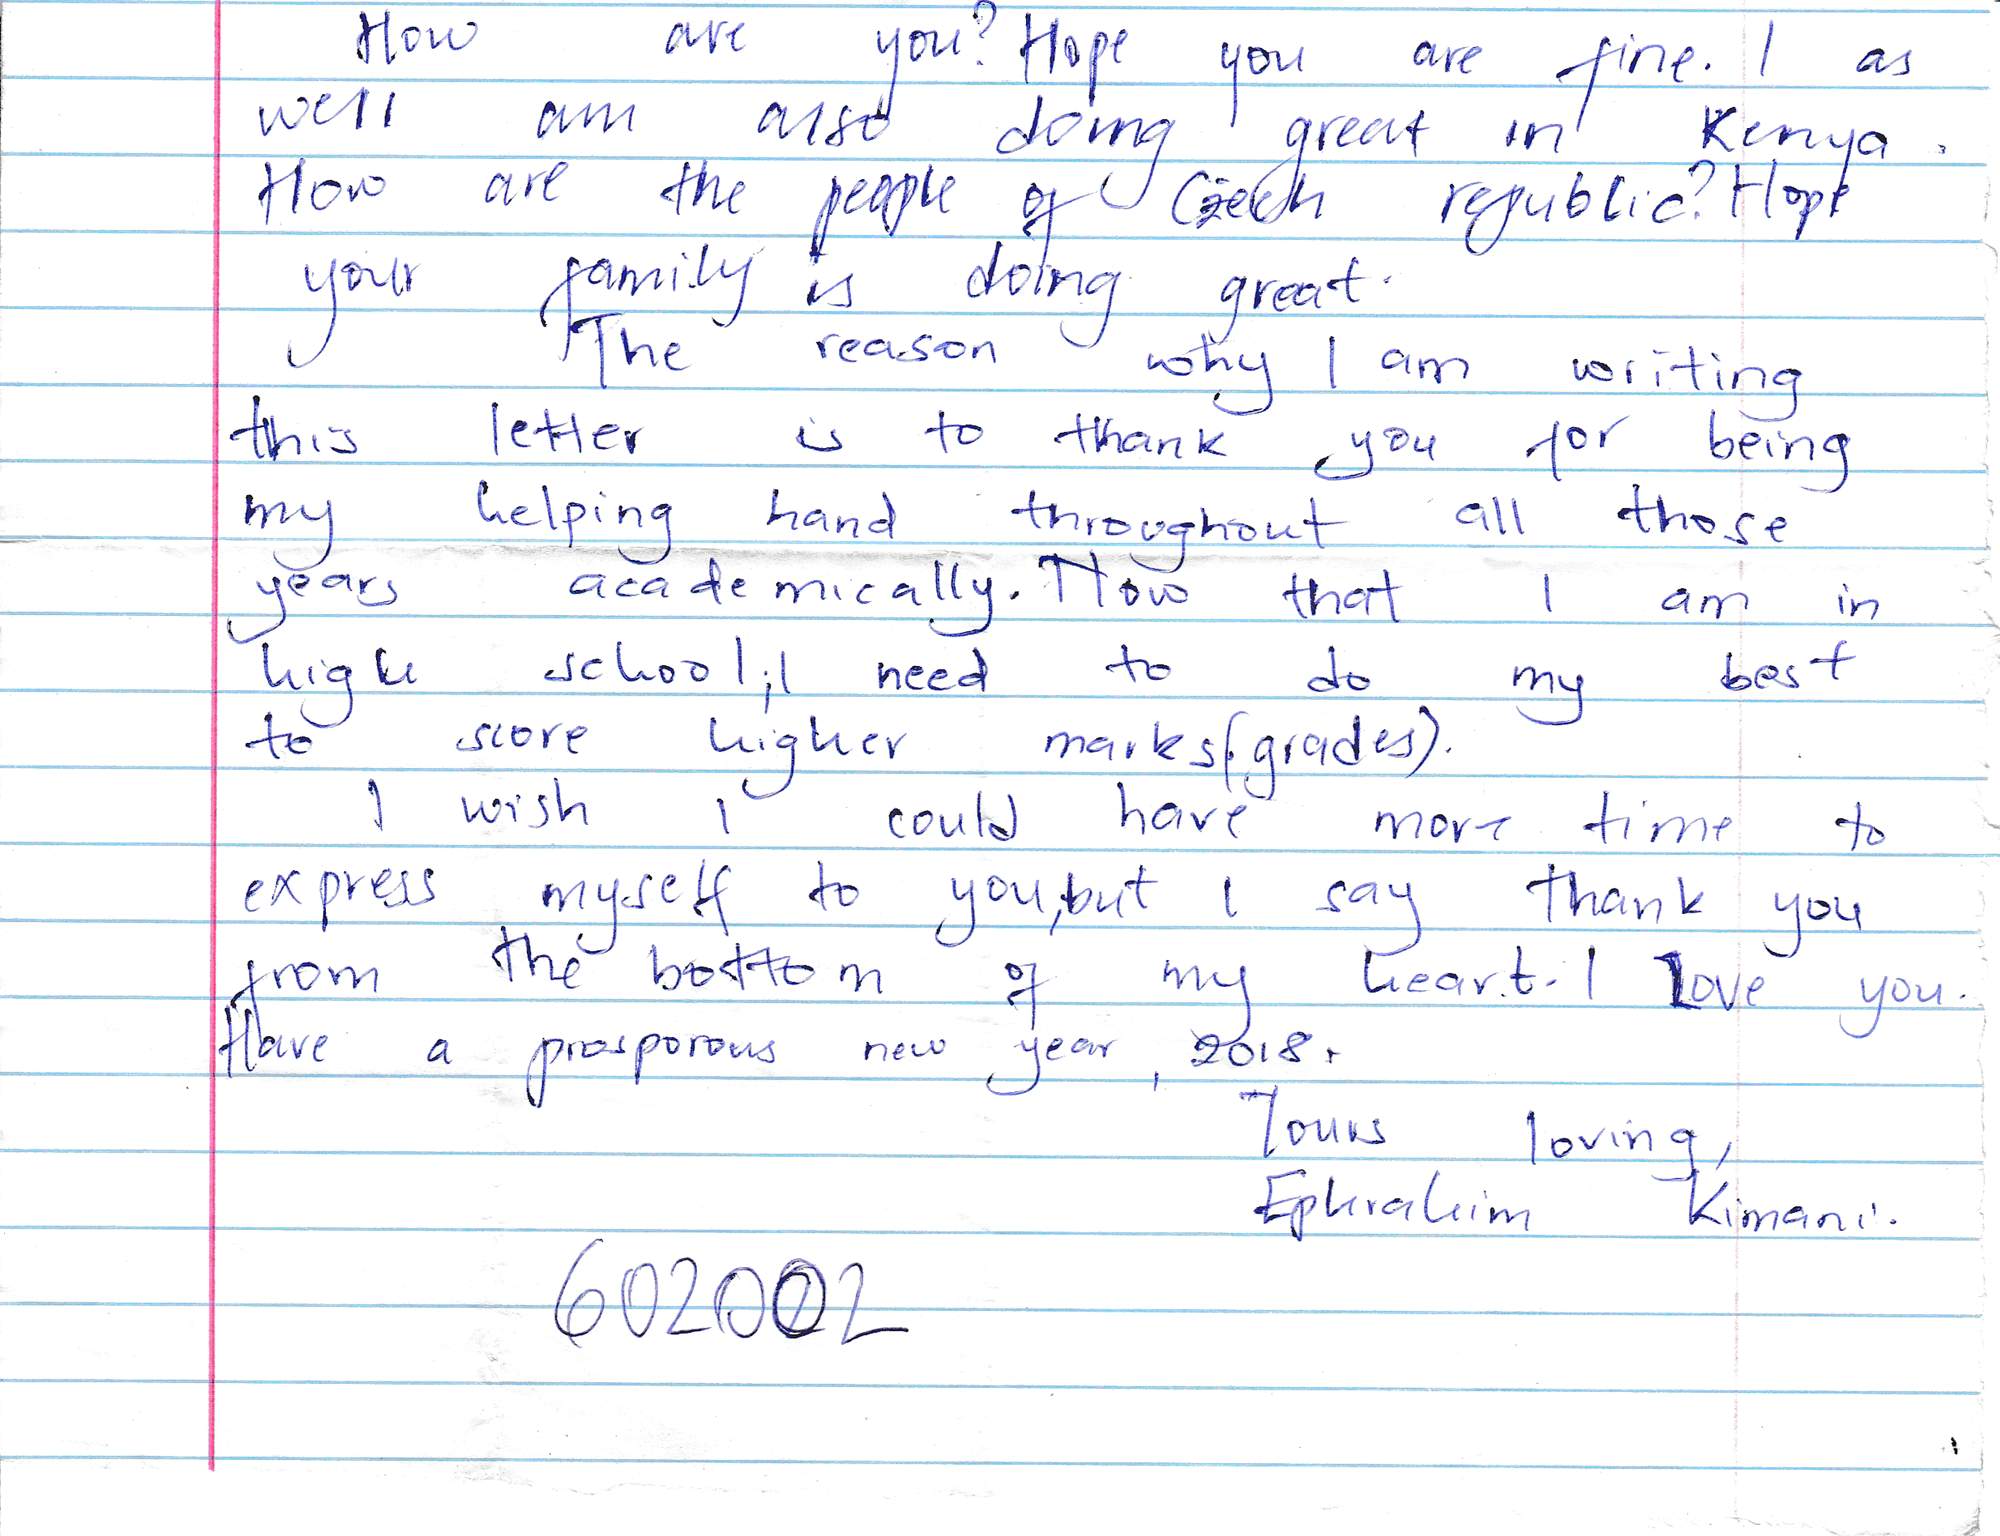 How are you? Hope you are fine. I as
well am also doing great in Kenya.
How are the people of Czech republic? Hope
your family is doing great.
The reason why I am writing
this letter is to thank you for being
my helping hand throughout all those
years academically. Now that I am in
high school, I need to do my best
to score higher marks (grades).
I wish I could have more time to
express myself to you, but I say thank you
from the bottom of my heart. I love you.
Have a prosporous new year, 2018.
Yours loving,
Ephrahim Kimani.
602002